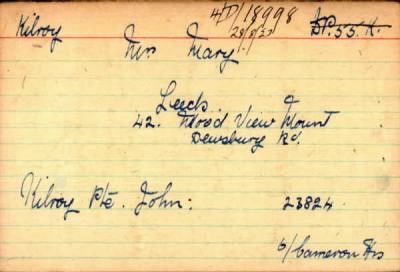 Kilroy 4/D/18998 DP.55.K.
Mrs Mary
Leeds
42. Wood View Mount
Dewsbury Rd.
Kilroy Pte. John: 23824
6/Cameron Hrs